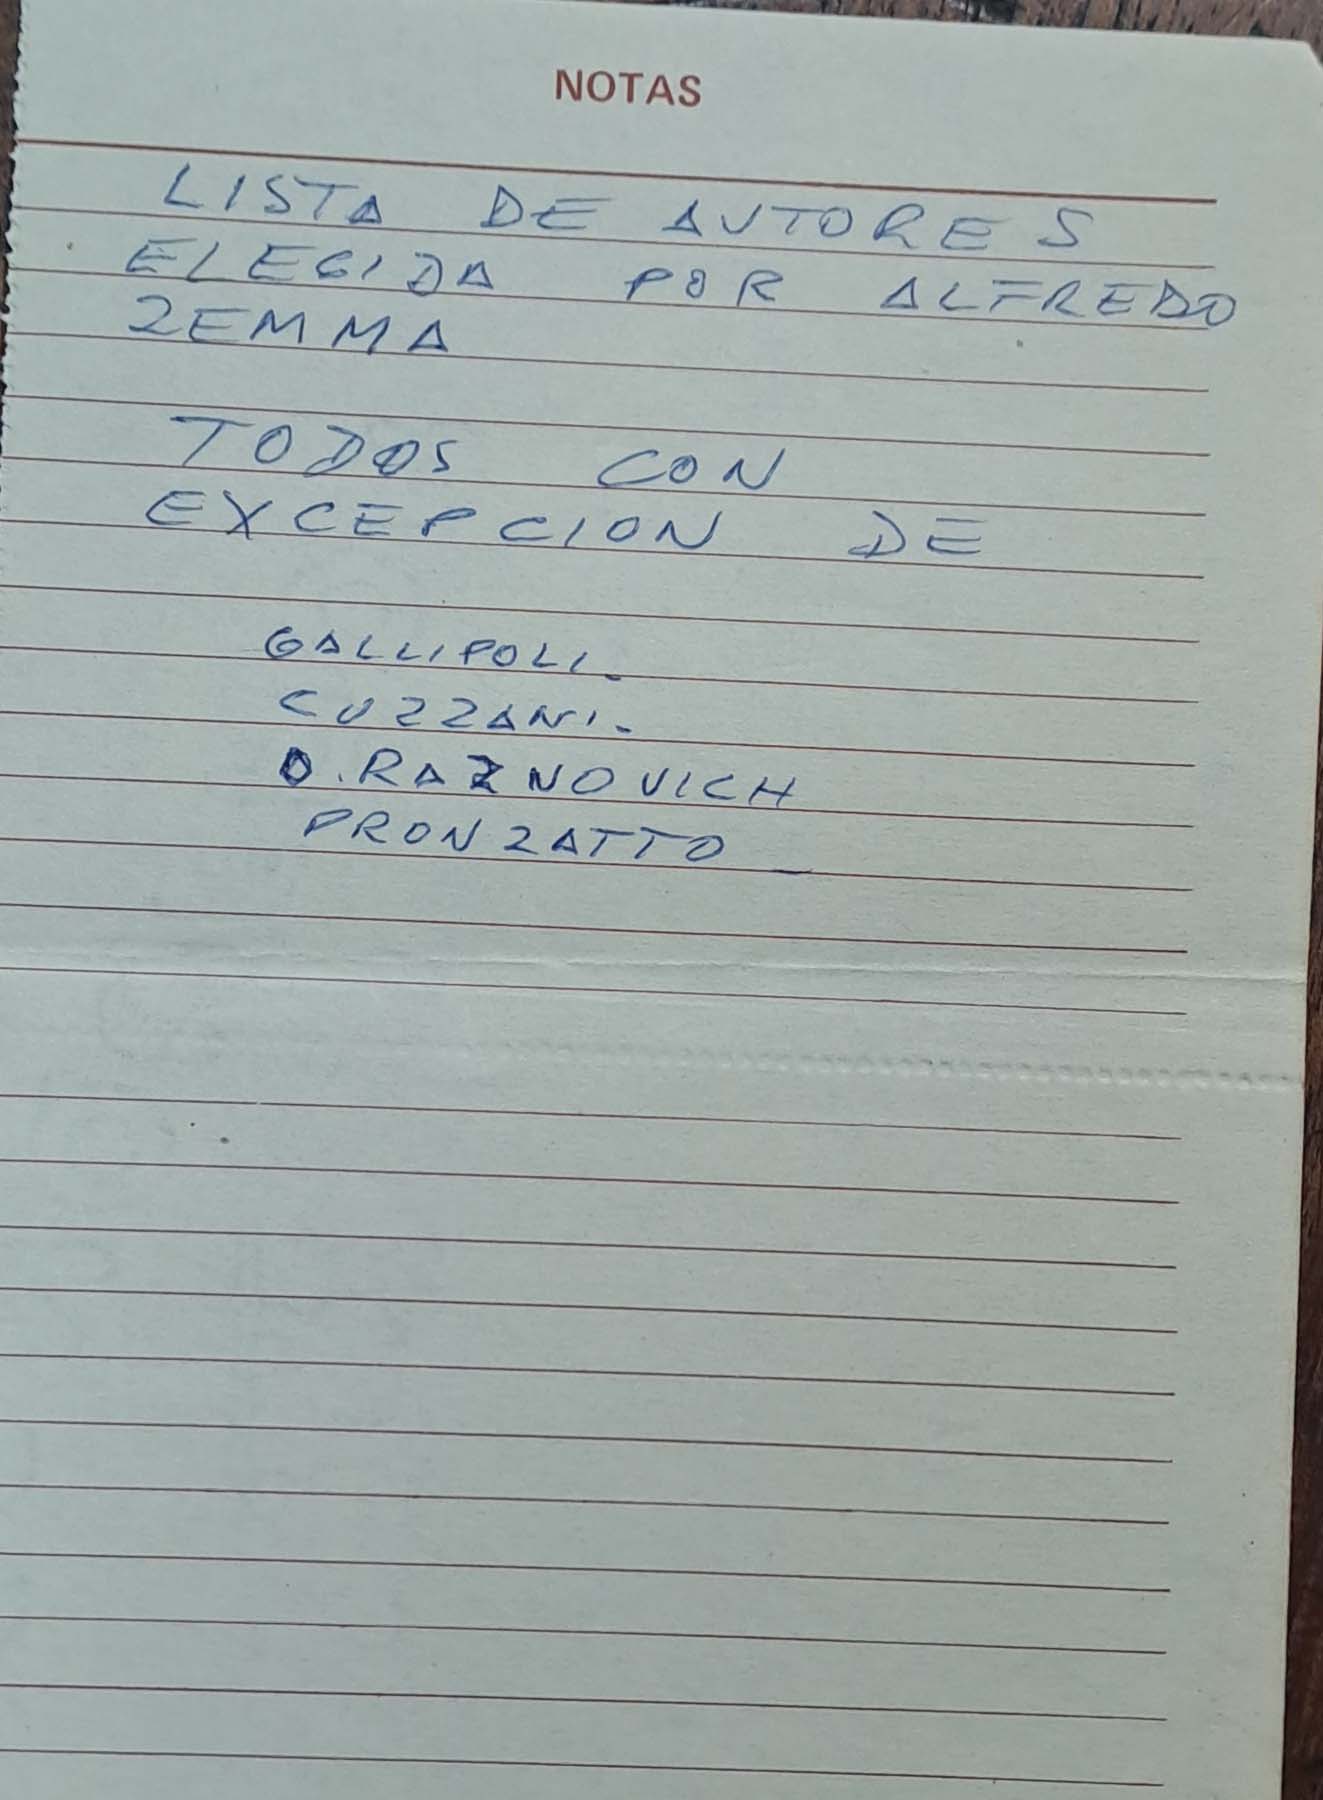 NOTAS
LISTA DE AUTORES
ELEGIDA POR ALFREDO
ZEMMA
TODOS CON
EXCEPCION DE
GALLIPOLI.
CUZZANI.
D. RAZNOVICH
PRONZATTO